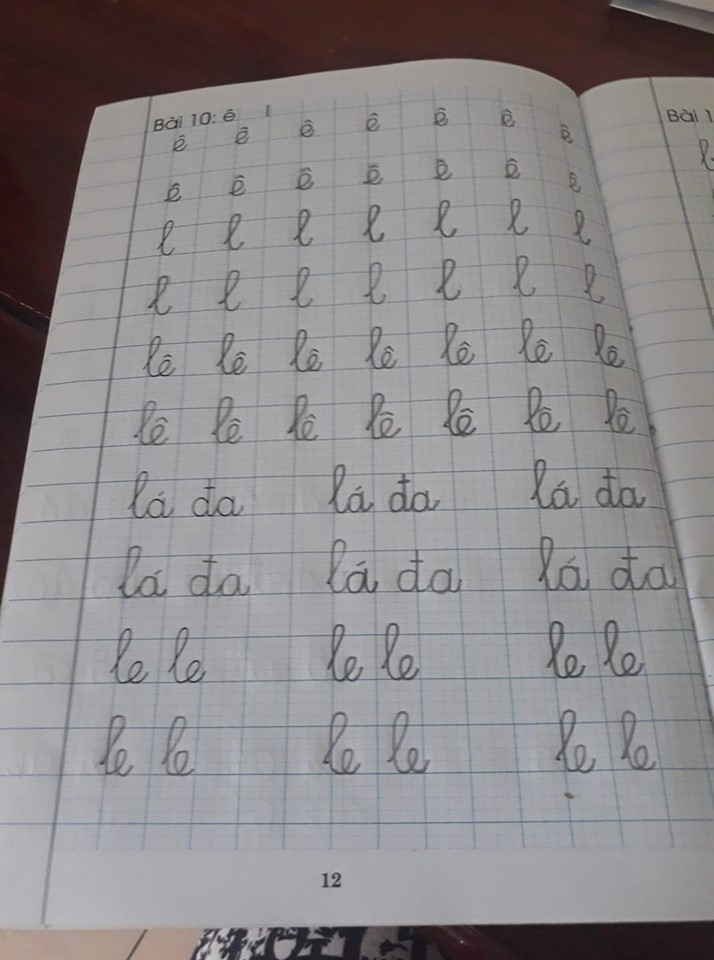 Bài 10: ê l
ê ê ê ê ê ê ê
ê ê ê ê ê ê ê
l l l l l l l
l l l l l l l
lê lê lê lê lê lê lê
lê lê lê lê lê lê lê
lá đa lá đa lá đa
lá đa lá đa lá đa
le le le le le le
le le le le le le
12
Bài 1
l